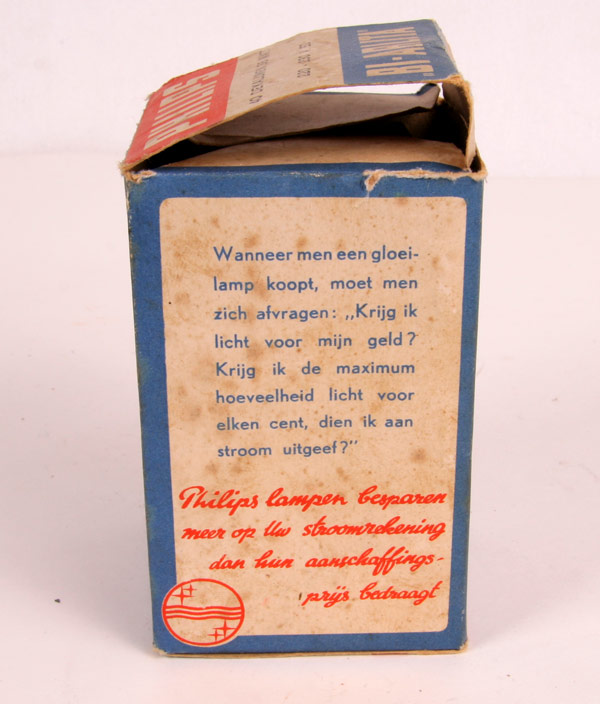 PHILIPS
„BI-ARLITA
Wanneer men een gloei-
lamp koopt, moet men
zich afvragen: „Krijg ik
licht voor mijn geld?
Krijg ik de maximum
hoeveelheid licht voor
elken cent, dien ik aan
stroom uitgeef?"
Philips lampen besparen
meer op Uw stroomrekening
dan hun aanschaffings-
prijs bedraagt